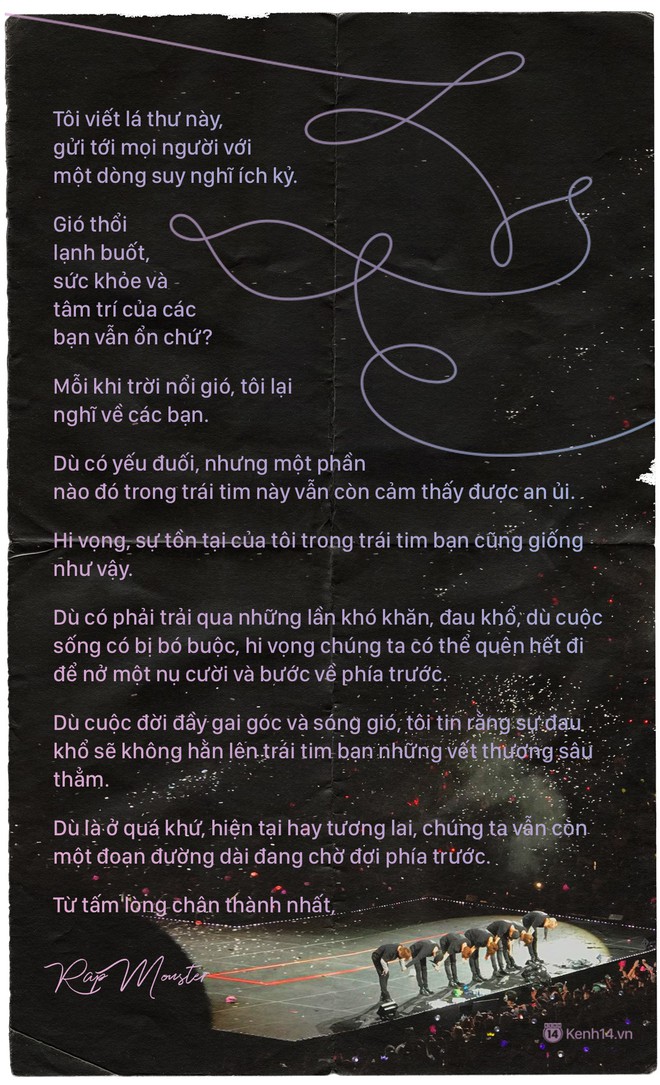 Tôi viết lá thư này,
gửi tới mọi người với
một dòng suy nghĩ ích kỷ.
Gió thổi
lạnh buốt,
sức khỏe và
tâm trí của các
bạn vẫn ổn chứ?
Mỗi khi trời nổi gió, tôi lại
nghĩ về các bạn.
Dù có yếu đuối, nhưng một phần
nào đó trong trái tim này vẫn còn cảm thấy được an ủi.
Hi vọng, sự tồn tại của tôi trong trái tim bạn cũng giống
như vậy.
Dù có phải trải qua những lần khó khăn, đau khổ, dù cuộc
sống có bị bó buộc, hi vọng chúng ta có thể quên hết đi
để nở một nụ cười và bước về phía trước.
Dù cuộc đời đầy gai góc và sóng gió, tôi tin rằng sự đau
khổ sẽ không hằn lên trái tim bạn những vết thương sâu
thẳm.
Dù là ở quá khứ, hiện tại hay tương lai, chúng ta vẫn còn
một đoạn đường dài đang chờ đợi phía trước.
Từ tấm lòng chân thành nhất,
Rap Monster
14 Kenh14.vn